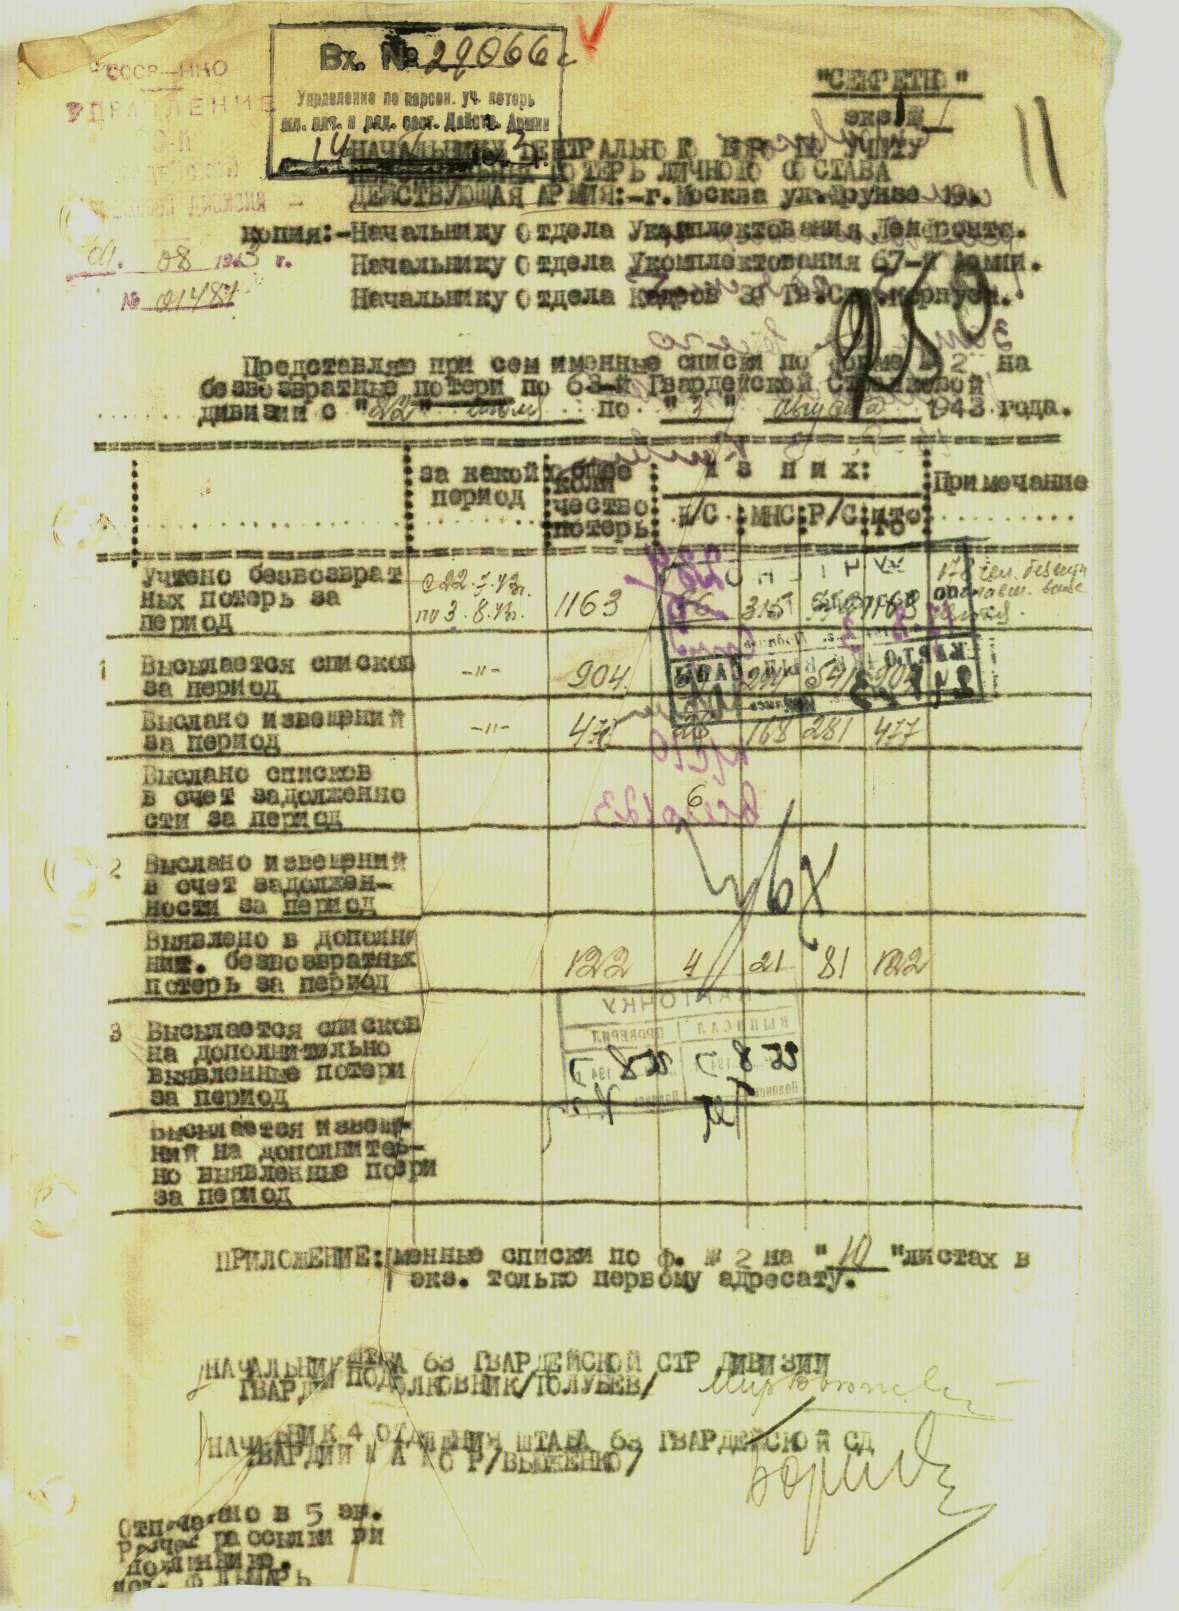 Вх. № 29066с
СССР—НКО
УПРАВЛЕНИЕ
Управление по персон. уч. потерь
мл. нач. и ряд. сост. Действ. Армии
"СЕКРЕТНО"
экз. № 1
НАЧАЛЬНИКУ ЦЕНТРАЛЬНОГО БЮРО ПО УЧЕТУ
ПОТЕРЬ ЛИЧНОГО СОСТАВА
ДЕЙСТВУЮЩАЯ АРМИЯ:-г.Москва ул.Фрунзе 19.
копия:-Начальнику Отдела Укомплектования Ленфронта.
Начальнику Отдела Укомплектования 67-й Армии.
Начальнику Отдела Кадров 30 Гв.Стр.Корпуса.
08 1943 г.
№ 01484
Представляю при сем именные списки по форме № 2 на
безвозвратные потери по 63-й Гвардейской Стрелковой
дивизии с "22" июля по "3" августа 1943 года.
за какой период
общее коли чество потерь
из них:
Примечание
Н/С МНС Р/С ИТО ГО
Учтено безвозврат
ных потерь за
период
с 22.7.43г.
по 3.8.43г.
1163 315 1163
178 чел.
1 Высылается списков
за период -"- 904
Выслано извещений
за период -"- 477 28 168 281 477
Выслано списков
в счет задолженно
сти за период
6
2 Выслано извещений
в счет задолжен-
ности за период
Выявлено в дополн
нит. безвозвратных
потерь за период 122 4 21 81 122
3 Высылается списков
на дополнительно
выявленные потери
за период
КАРТОЧКУ
ВЫПИСАЛ ПРОВЕРИЛ
Высылается извеще-
ний на дополнитель-
но выявленные потери
за период
ПРИЛОЖЕНИЕ: Именные списки по ф. № 2 на "10" листах в
экз. только первому адресату.
НАЧАЛЬНИК ШТАБА 63 ГВАРДЕЙСКОЙ СТР ДИВИЗИИ
ГВАРДИ ПОДПОЛКОВНИК/ГОЛУБЕВ/
НАЧАЛЬНИК 4 ОТДЕЛЕНИЯ ШТАБА 63 ГВАРДЕЙСКОЙ СД
ГВАРДИИ МАЙОР/ВЫЖЕНКО/
Отпечатано в 5 эк.
Расчет рассылки на
подлиннике.